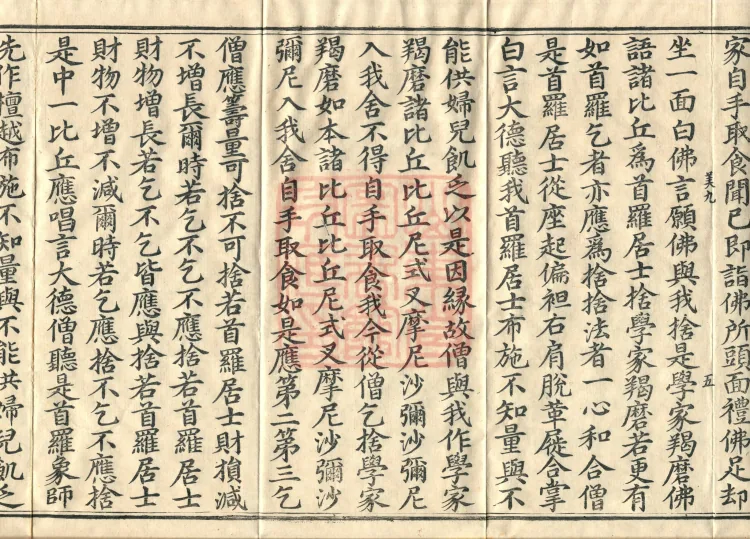 家自手取食聞已即詣佛所頭面禮佛足却
坐一面白佛言願佛與我捨是學家羯磨佛
語諸比丘爲首羅居士捨學家羯磨若更有
如首羅乞者亦應爲捨捨法者一心和合僧
是首羅居士從座起偏袒右肩脫革屣合掌
白言大德聽我首羅居士布施不知量與不
能供婦兒飢乏以是因縁故僧與我作學家
羯磨諸比丘比丘尼式叉摩尼沙彌沙彌尼
入我舍不得自手取食我今從僧乞捨學家
羯磨如本諸比丘比丘尼式叉摩尼沙彌沙
彌尼入我舍自手取食如是應第二第三乞
僧應籌量可捨不可捨若首羅居士財損減
不增長爾時若乞不乞不應捨若首羅居士
財物增長若乞不乞皆應與捨若首羅居士
財物不增不減爾時若乞應捨不乞不應捨
是中一比丘應唱言大德僧聽是首羅象師
先作檀越布施不知量與不能供婦兒飢乏